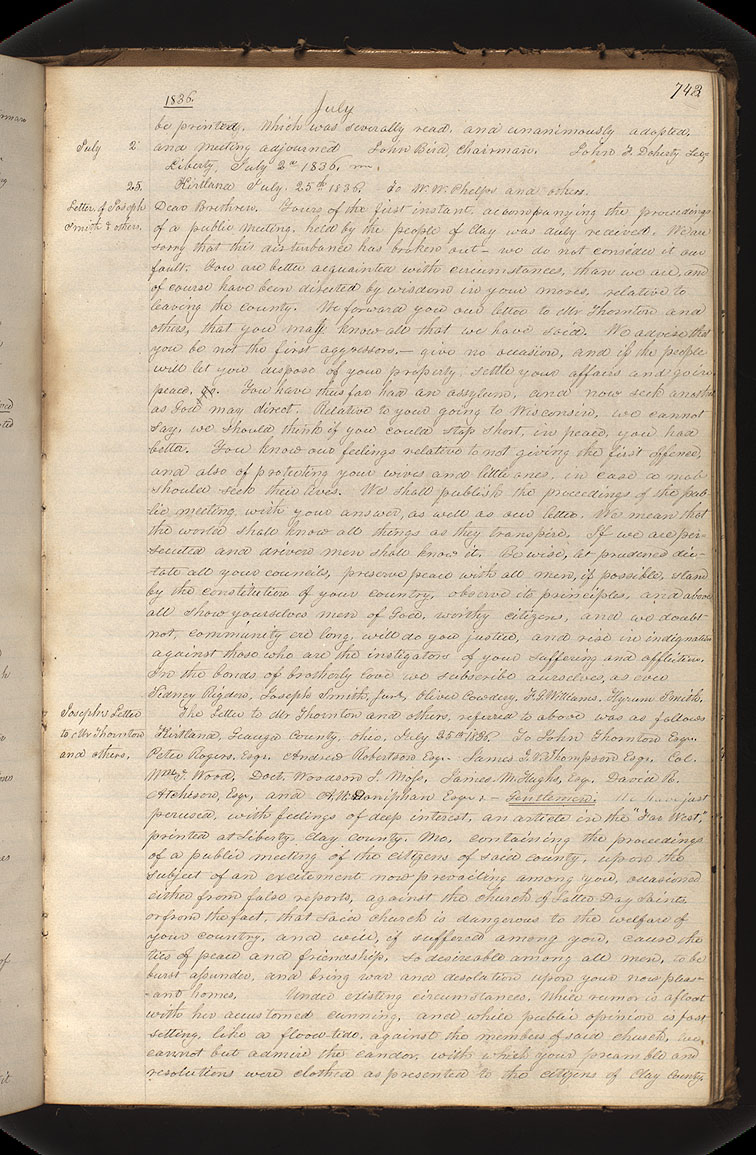 1836.
July
743
be printed, Which was severally read, and unanimously adopted,
July 2
and meeting adjourned John Bird Chairman. John F. Doherty Secy
Liberty, July 2nd 1836.
25.
Kirtland July 25th 1836 To W. W. Phelps and others.
Letter of Joseph
Smith & others.
Dear Brethren. Yours of the first instant, accompanying the proceedings
of a public meeting, held by the people of Clay was duly received. We are
sorry that this disturbance has broken out— we do not consider it our
fault. You are better acquainted with circumstances, than we are, and
of course have been directed by wisdom in your moves, relative to
leaving the county. We forward you our letter to Mr Thornton and
others, that you may know all that we have said. We advise that
you be not the first aggressors.— give no occasion, and if the people
will let you dispose of your property, settle your affairs and go in
peace, go. You have thus far had an assylum, and now seek another
as God may direct. Relative to your going to Wisconsin, we cannot
say, we should think if you could stop short, in peace, you had
better. You know our feelings relative to not giving the first offence,
and also of protecting your wives and little ones, in case a mob
should seek their lives. We shall publish the proceedings of the pub-
lic meeting, with your answer, as well as our letter. We mean that
the world shall know all things as they transpire. If we are per-
secuted and driven men shall know it. Be wise, let prudence dic-
tate all your councils, preserve peace with all men, if possible, stand
by the constitution of your country, observe its principles, and above
all show yourselves men of God, worthy citizens, and we doubt
not, community ere long, will do you justice, and rise in indignation
against those who are the instigators of your suffering and affliction.
In the bonds of brotherly love we subscribe ourselves, as ever
Sidney Rigdon, Joseph Smith, Jun., Oliver Cowdery, F. G. Williams. Hyrum Smith.
Josephs Letter
to Mr Thornton
and others,
The Letter to Mr Thornton and others, referred to above was as follows
Kirtland, Geauga County, Ohio, July 25th 1836 To John Thornton Esqr.
Peter Rogers. Esqr. Andrew Robertson Esqr. James T. V. Thompson Esqr. Col.
Wm T. Wood, Doct. Woodson J. Moss, James M. Hughs, Esq. David R.
Atchison, Esqr, and A. W. Doniphan Esqrs.— Gentlemen. We have just
perused, with feelings of deep interest, an article in the "Far West,"
printed at Liberty, Clay County, Mo. containing the proceedings
of a public meeting of the citizens of said county, upon the
subject of an excitement now prevailing among you, ocasioned
either from false reports, against the church of Latter Day Saints,
or from the fact, that said church is dangerous to the welfare of
your country, and will, if suffered among you, cause the
ties of peace and friendship, so desireable among all men, to be
burst asunder, and bring war and desolation upon your now pleas-
-ant homes. Under existing circumstances, While rumor is afloat
with her accustomed cunning, and while public opinion is fast
setting, like a flood-tide, against the members of said church, we
cannot but admire the candor, with which your preamble and
resolutions were clothed as presented to the citizens of Clay County,